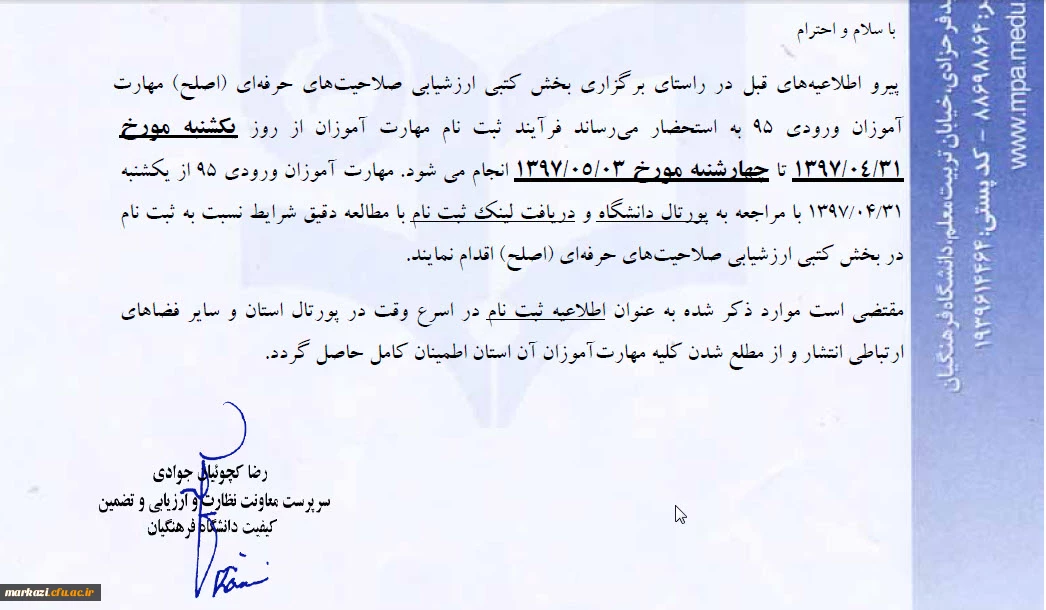 با سلام و احترام
پیرو اطلاعیه‌های قبل در راستای برگزاری بخش کتبی ارزشیابی صلاحیت‌های حرفه‌ای (اصلح) مهارت
آموزان ورودی ۹۵ به استحضار می‌رساند فرآیند ثبت نام مهارت آموزان از روز یکشنبه مورخ
۱۳۹۷/۰۴/۳۱ تا چهارشنبه مورخ ۱۳۹۷/۰۵/۰۳ انجام می شود. مهارت آموزان ورودی ۹۵ از یکشنبه
۱۳۹۷/۰۴/۳۱ با مراجعه به پورتال دانشگاه و دریافت لینک ثبت نام با مطالعه دقیق شرایط نسبت به ثبت نام
در بخش کتبی ارزشیابی صلاحیت‌های حرفه‌ای (اصلح) اقدام نمایند.
مقتضی است موارد ذکر شده به عنوان اطلاعیه ثبت نام در اسرع وقت در پورتال استان و سایر فضاهای
ارتباطی انتشار و از مطلع شدن کلیه مهارت‌آموزان آن استان اطمینان کامل حاصل گردد.
رضا کچوئیان جوادی
سرپرست معاونت نظارت و ارزیابی و تضمین
کیفیت دانشگاه فرهنگیان
فرحزادی، خیابان تربیت معلم، دانشگاه فرهنگیان
۸۸۶۹۸۸۶۴ - کد پستی: ۱۹۳۹۶۱۴۴۶۴
www.mpa.medu
markazi.cfu.ac.ir